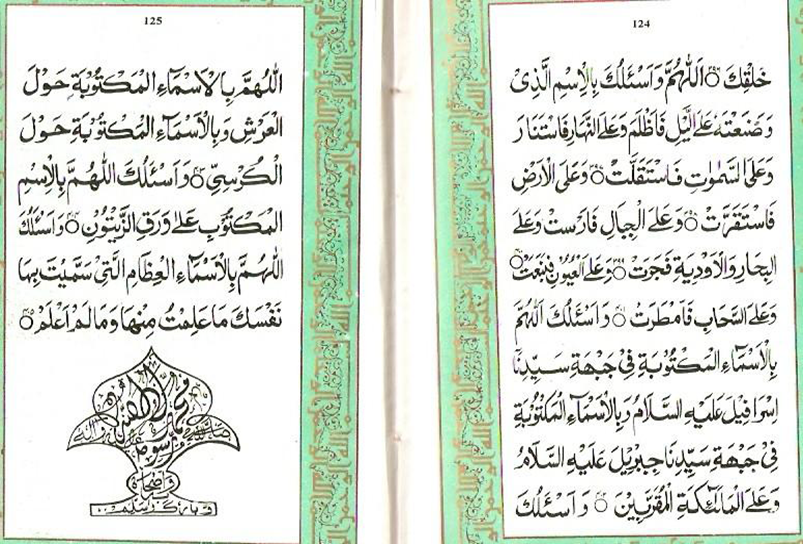 124
خَلْقِكَ ۝ اَللّٰهُمَّ وَاَسْئَلُكَ بِالْاِسْمِ الَّذِىْ
وَضَعْتَهٗ عَلَى الَّيْلِ فَاَظْلَمَ وَعَلَى النَّهَارِ فَاسْتَنَارَ
وَعَلَى السَّمٰوٰتِ فَاسْتَقَلَّتْ ۝ وَعَلَى الْاَرْضِ
فَاسْتَقَرَّتْ ۝ وَعَلَى الْجِبَالِ فَارْسَتْ وَعَلَى
الْبِحَارِ وَالْاَوْدِيَةِ فَجَرَتْ ۝ وَعَلَى الْعُيُوْنِ فَنَبَعَتْ ۝
وَعَلَى السَّحَابِ فَاَمْطَرَتْ ۝ وَاَسْئَلُكَ اللّٰهُمَّ
بِالْاَسْمَآءِ الْمَكْتُوْبَةِ فِىْ جَبْهَةِ سَيِّدِنَا
اِسْرَافِيْلَ عَلَيْهِ السَّلَامُ وَبِالْاَسْمَآءِ الْمَكْتُوْبَةِ
فِىْ جَبْهَةِ سَيِّدِنَا جِبْرِيْلَ عَلَيْهِ السَّلَامُ
وَعَلَى الْمَلٰٓئِكَةِ الْمُقَرَّبِيْنَ ۝ وَاَسْئَلُكَ
125
اللّٰهُمَّ بِالْاَسْمَآءِ الْمَكْتُوْبَةِ حَوْلَ
الْعَرْشِ وَبِالْاَسْمَآءِ الْمَكْتُوْبَةِ حَوْلَ
الْكُرْسِيِّ ۝ وَاَسْئَلُكَ اللّٰهُمَّ بِالْاِسْمِ
الْمَكْتُوْبِ عَلٰى وَرَقِ الزَّيْتُوْنِ ۝ وَاَسْئَلُكَ
اللّٰهُمَّ بِالْاَسْمَآءِ الْعِظَامِ الَّتِىْ سَمَّيْتَ بِهَا
نَفْسَكَ مَا عَلِمْتُ مِنْهَا وَمَا لَمْ اَعْلَمْ ۝
وبارك وسلم